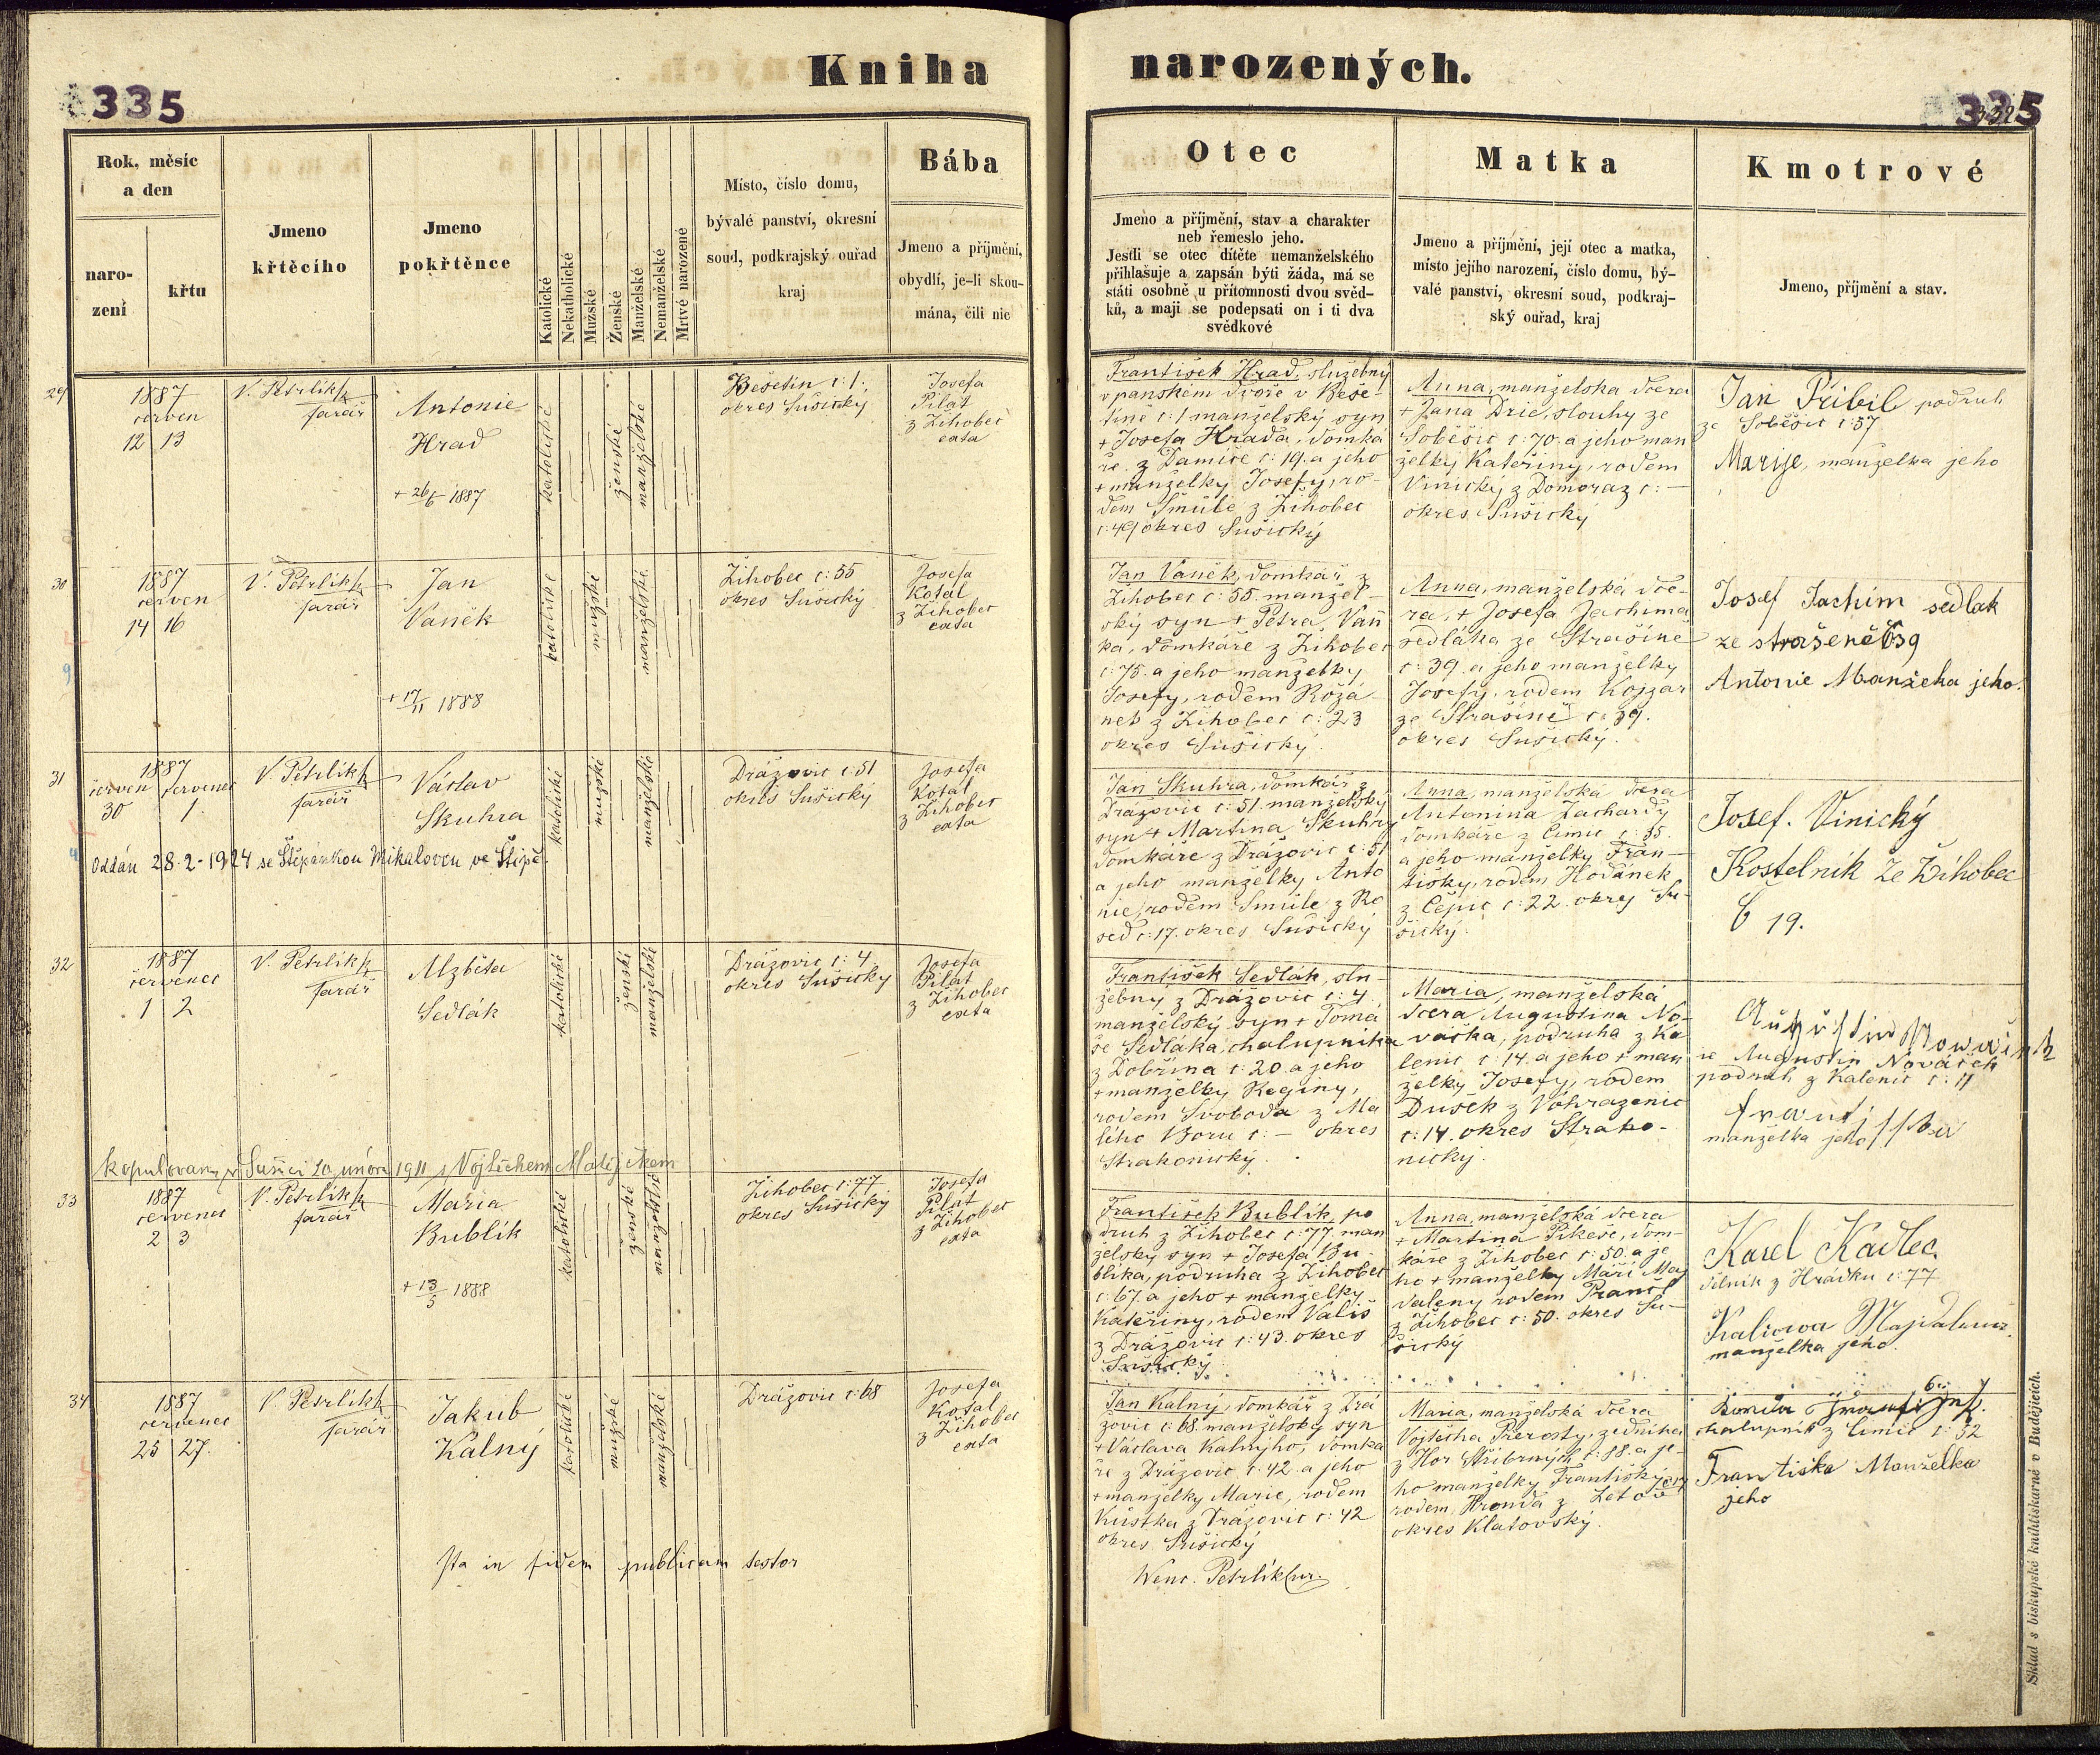 Kniha
narozených.
335
335
Rok, měsíc
a den
naro-
zení
křtu
Jmeno
křtěcího
Jmeno
pokřtěnce
Katolické
Nekatholické
Mužské
Ženské
Manželské
Nemanželské
Mrtvé narozené
Místo, číslo domu,
bývalé panství, okresní
soud, podkrajský ouřad
kraj
Bába
Jmeno a příjmění,
obydlí, je-li skou-
mána, čili nic
Otec
Jmeno a příjmění, stav a charakter
neb řemeslo jeho.
Jestli se otec dítěte nemanželského
přihlašuje a zapsán býti žáda, má se
státi osobně u přítomnosti dvou svěd-
ků, a mají se podepsati on i ti dva
svědkové
Matka
Jmeno a příjmění, její otec a matka,
místo jejího narození, číslo domu, bý-
valé panství, okresní soud, podkraj-
ský ouřad, kraj
Kmotrové
Jmeno, příjmění a stav.
29
1887
červen
12 13
V. Petrlík
farář
Antonie
Hrad
+ 26/6 1887
katolické
ženské
manželské
Bešetín č: 1:
okres Sušický
Josefa
Pilát
z Žihobec
exta
František Hrad, služebný
v panském dvoře v Beše-
tíně č: 1 manželský syn
+ Josefa Hrada, domká
ře z Damíče č: 19. a jeho
+ manželky Josefy, ro-
dem Šmůle z Žihobec
č: 49 okres Sušický
Anna, manželska dcera
+ Jana Drie, slouhy ze
Soběšic č: 70. a jeho man
želky Kateřiny, rodem
Vinický z Domoraz č: —
okres Sušický
Jan Přibil podruh
ze Soběšic č: 57
Marije, manzelka jeho
30
1887
červen
14 16
V. Petrlík
farář
Jan
Vaněk
+ 17/11 1888
katolické
mužské
manželské
Žihobec č: 55
okres Sušický
Josefa
Kotal
z Žihobec
exta
Jan Vaněk, domkář z
Žihobec č: 55. manžel-
ský syn + Petra Vaň
ka, domkáře z Žihobec
č: 75. a jeho manželky
Josefy, rodem Rožá-
neb z Žihobec č: 23
okres Sušický.
Anna, manželská dce-
ra, + Josefa Jachima
sedláka ze Strašíně
č: 39. a jeho manželky
Josefy, rodem Kojzar
ze Strašíně č: 39.
okres Sušický.
Josef Jachim sedlak
ze strašeně č39
Antonie Manželka jeho.
31
1887
červen červenec
30 1.
V. Petrlík
farář
Václav
Skuhra
Oddán 28-2-1924 se Štěpánkou Mikalovou ve Štipě.
katolické
mužské
manželské
Drážovic č: 51
okres Sušický
Josefa
Kotal
z Žihobec
exta
Jan Skuhra, domkář z
Drážovic č: 51. manželský
syn + Martina Skuhry
domkáře z Drážovic č: 51
a jeho manželky Anto
nie, rodem Šmůle z Ro
sed č: 17. okres Sušický
Anna, manželská dcera
Antonína Zachardy
domkáře z Čimic č: 35.
a jeho manželky Fran-
tišky, rodem Hodánek
z Čepic č: 22. okres Su-
šický.
Josef. Vinický
Kostelník Ze Žihobec
č 19.
32
1887
červenec
1 2
V. Petrlík
farář
Alzběta
Sedlák
kopulovany v Sušici 20. února 1911 s Vojtěchem Matějčkem
katolické
ženské
manželské
Drážovic č: 4
okres Sušický
Josefa
Pilat
z Žihobec
exta
František Sedlák, slu-
žebný z Drážovic č: 4.
manželský syn + Tomá
še Sedláka, chalupníka
z Dobřína č: 20. a jeho
+ manželky Reginy,
rodem Svoboda z Ma
lího Boru č: — okres
Strakonický.
Maria, manželská
dcera Augustina No-
váčka, podruha z Ka
lenic č: 14. a jeho + man
želky Josefy, rodem
Dušek z Vohrazenic
č: 14. okres Strako-
nický.
Augustin Nowáček
ře Augustin Nováček
podruh z Kalenic č: 11
Františka
manželka jeho
33
1887
červenec
2 3
V. Petrlík
farář
Maria
Bublík
+ 13/5 1888
katolické
ženské
manželské
Žihobec č: 77
okres Sušický
Josefa
Pilat
z Žihobec
exta
František Bublík, po
druh z Žihobec č: 77. man
želský syn + Josefa Bu-
blíka, podruha z Žihobec
č: 67. a jeho + manželky
Kateřiny, rodem Vališ
z Drážovic č: 43. okres
Sušický.
Anna, manželská dcera
+ Martina Pikeše, dom-
káře z Žihobec č: 50. a je
ho + manželky Máří Mag
daleny rodem Prančl
z Žihobec č: 50. okres Su-
šický
Karel Kadlec
dělník z Hrádku č: 77
Manželka jeho
34
1887
červenec
25 27.
V. Petrlík
farář
Jakub
Kalný
katolické
mužské
manželské
Drážovic č: 68
Josefa
Kotal
z Žihobec
exta
Jan Kalný, domkář z Drá
žovic č: 68. manželský syn
+ Václava Kalnýho, domká
ře z Drážovic č: 42. a jeho
+ manželky Marie, rodem
Kůstka z Drážovic č: 42
okres Sušický
Maria, manželská dcera
Vojtěcha Přerosty, zedníka
z Hor Stříbrných č: 88. a je-
ho manželky Františky
rodem Hronda z
okres Klatovský.
chalupník z Čimic č: 32
Františka Manželka
jeho
Ita in fidem publicam testor
Wenc. Petrlík
Sklad s biskupské knihtiskárně v Budějicích.